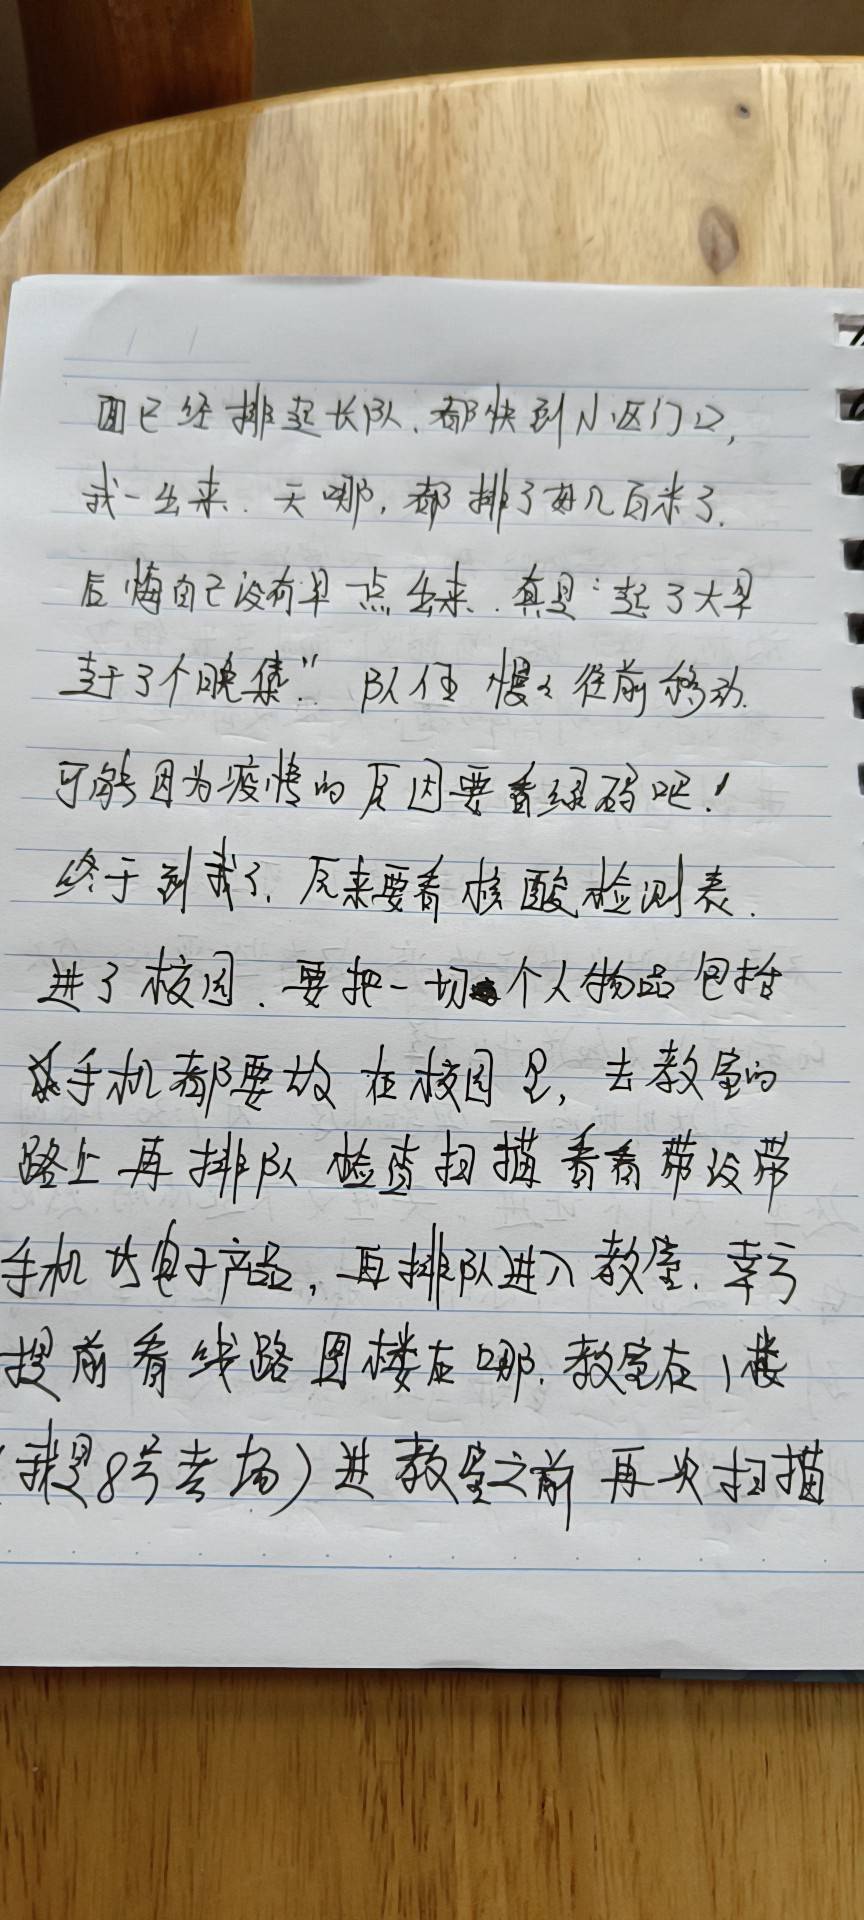 面已经排起长队.都快到小区门口,
我一出来.天哪,都排了好几百米了.
后悔自己没有早一点出来.真是“起了大早
赶了个晚集”.队伍慢慢往前移动.
可能因为疫情的原因要看绿码吧!
终于到我了.原来要看核酸检测表.
进了校园.要把一切个人物品包括
手机都要放在校园里,去教室的
路上再排队检查扫描看看带没带
手机等电子产品,再排队进入教室.幸亏
提前看线路图楼在哪.教室在1楼
(我是8号考场)进教室之前再次扫描